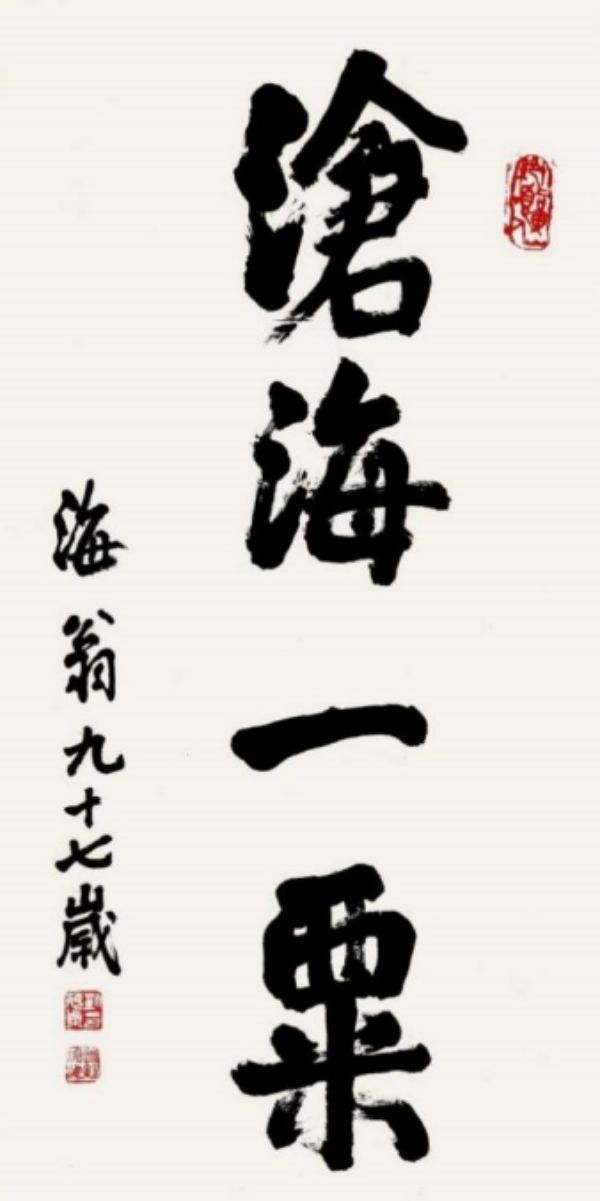 滄海一粟
海翁九十七歲